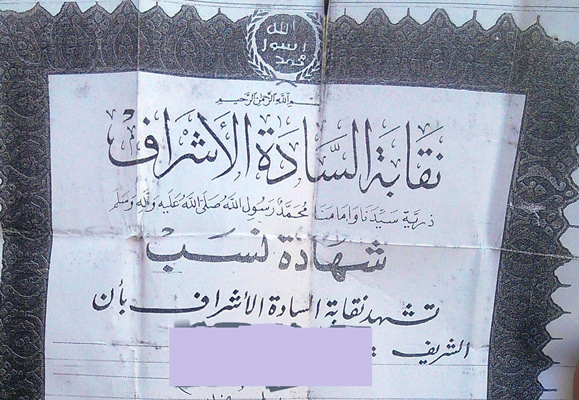 الله
رسول
محمد
بسم الله الرحمن الرحيم
نقابة السَّادة الأشراف
ذرية سيدنا وامامنا محمد رسول الله صلى الله عليه وآله وسلم
شهادة نسب
تشهد نقابة السادة الأشراف بأن
الشريف :